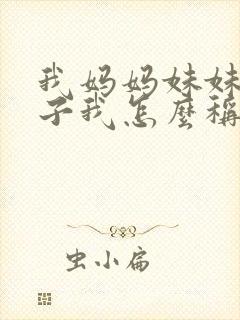 我妈妈妹妹
子我怎麽稱
虫小扁